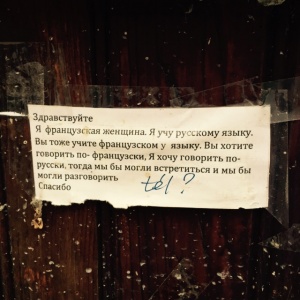 Здравствуйте
Я французская женщина. Я учу русскому языку.
Вы тоже учите французском у языку. Вы хотите
говорить по- французски, Я хочу говорить по-
русски, тогда мы бы могли встретиться и мы бы
могли разговорить
Спасибо
tél ?